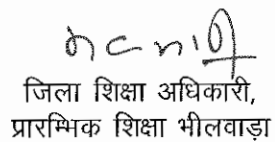 जिला शिक्षा अधिकारी,
प्रारम्भिक शिक्षा भीलवाड़ा